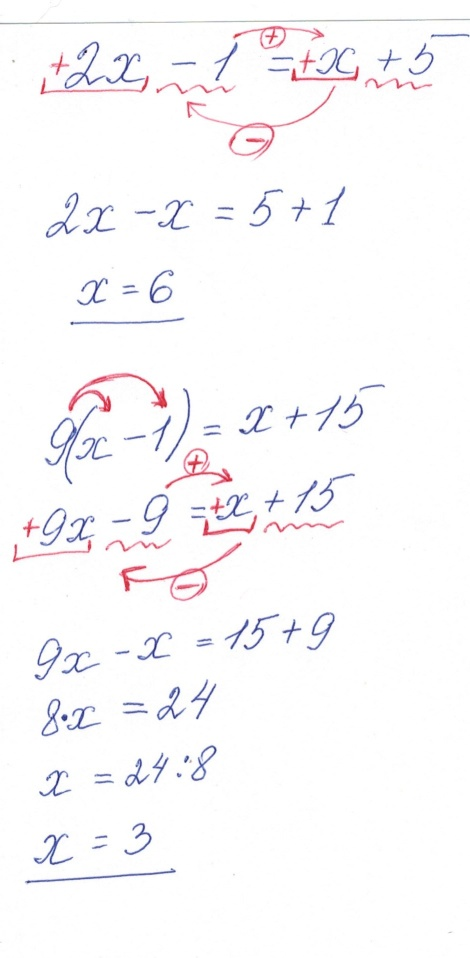 +2x − 1 = +x + 5
+
−
2x − x = 5 + 1
x = 6
9(x − 1) = x + 15
+
+9x − 9 = +x + 15
−
9x − x = 15 + 9
8·x = 24
x = 24:8
x = 3